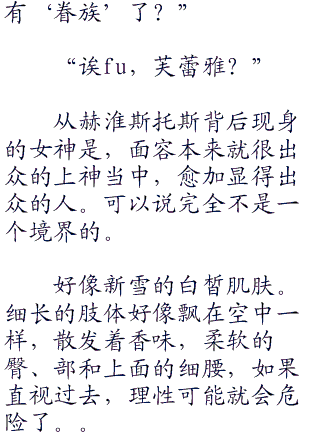 有‘眷族’了？”
“诶fu，芙蕾雅？”
从赫淮斯托斯背后现身
的女神是，面容本来就很出
众的上神当中，愈加显得出
众的人。可以说完全不是一
个境界的。
好像新雪的白皙肌肤。
细长的肢体好像飘在空中一
样，散发着香味，柔软的
臀、部和上面的细腰，如果
直视过去，理性可能就会危
险了。。